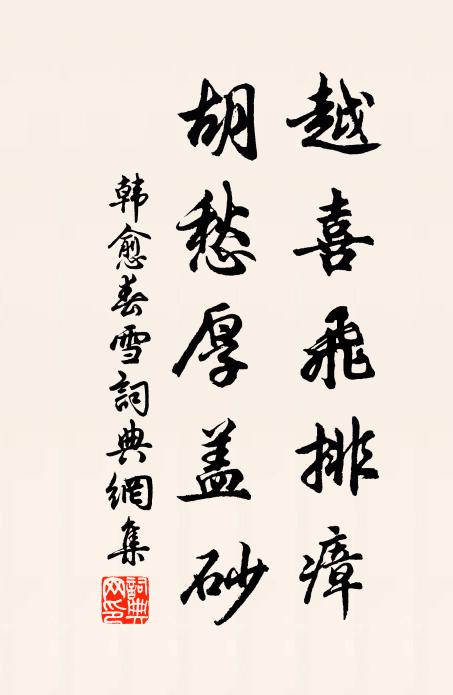 越喜飛排瘴
胡愁厚盖砂
韩愈春雪詞典網集
詞典网印